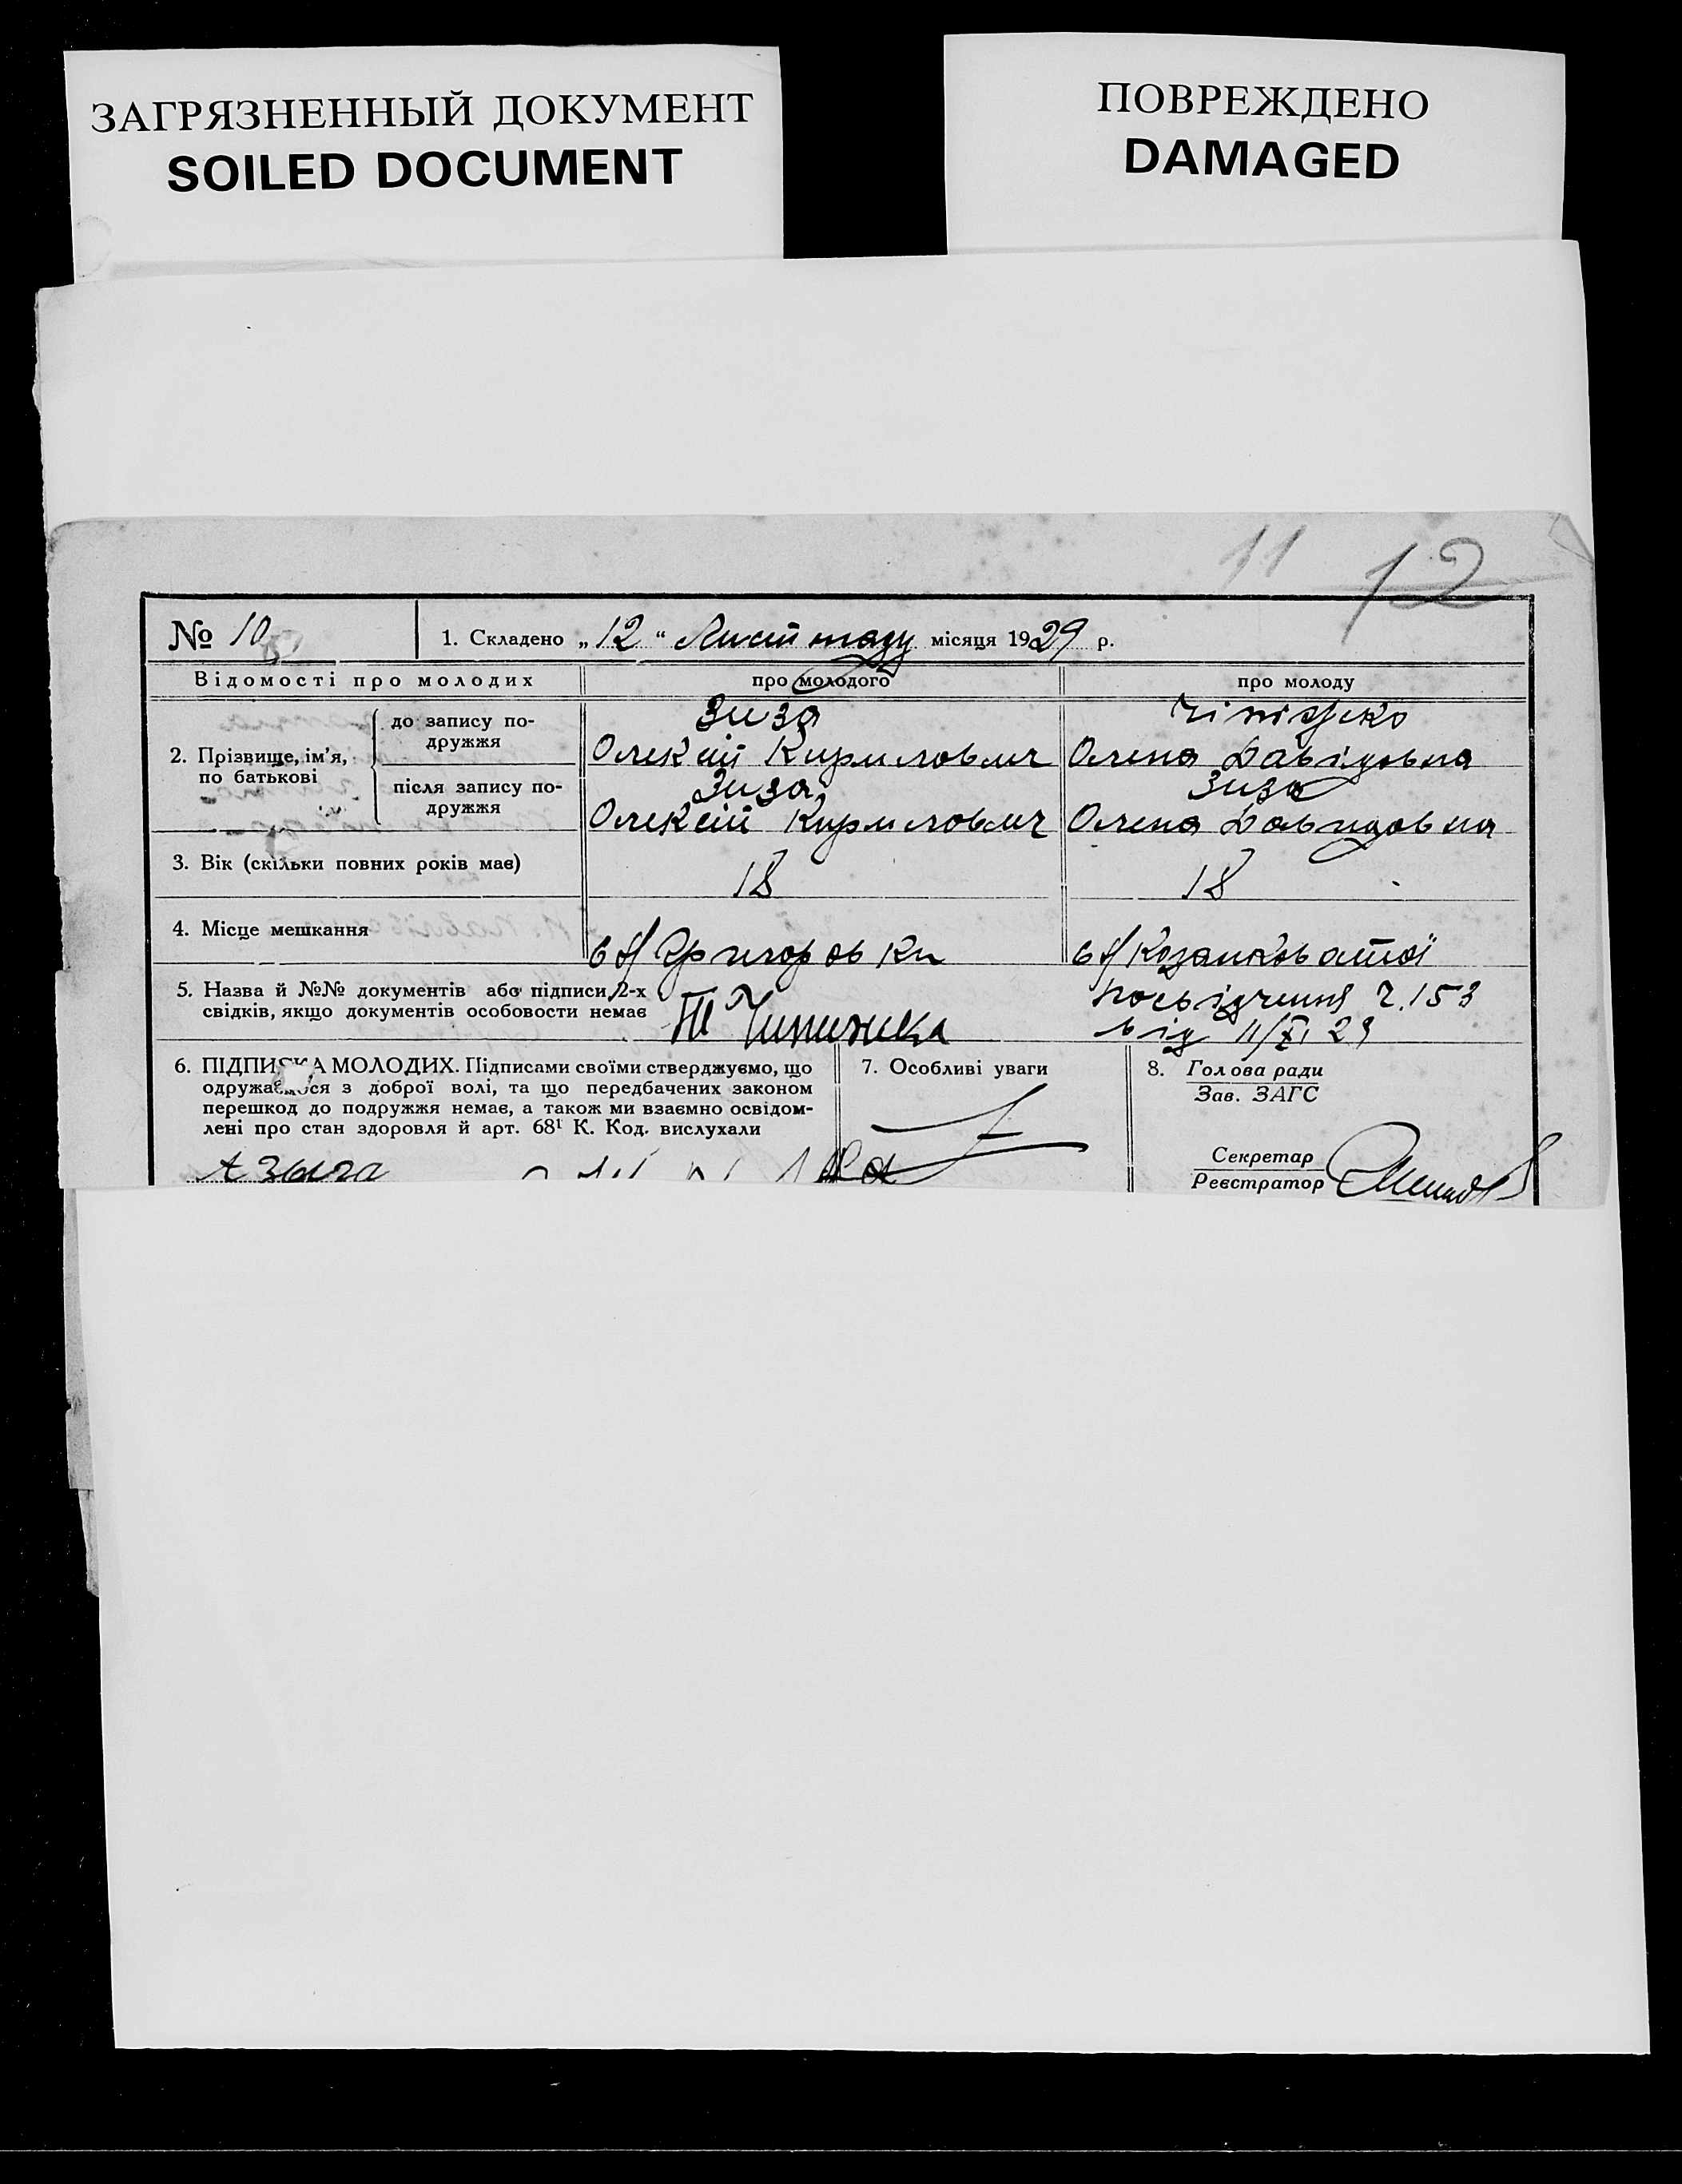 ЗАГРЯЗНЕННЫЙ ДОКУМЕНТ
SOILED DOCUMENT
ПОВРЕЖДЕНО
DAMAGED
11 12
№ 10
1. Складено „12“ Листопаду місяця 1929 р.
Відомості про молодих
про молодого
про молоду
2. Прізвище, ім’я, по батькові
до запису подружжя
Зиза
Олексій Кирилович
Олена Давідовна
після запису подружжя
Зиза
Олексій Кирилович
Зиза
Олена Давидовна
3. Вік (скільки повних років має)
18
18
4. Місце мешкання
Григоровки
Козанковатої
5. Назва й №№ документів або підписи 2-х
свідків, якщо документів особовости немає
Посвідчення Ч. 153
від 11/XI 29
6. ПІДПИСКА МОЛОДИХ. Підписами своїми стверджуємо, що
одружаємося з доброї волі, та що передбачених законом
перешкод до подружжя немає, а також ми взаємно освідом-
лені про стан здоровля й арт. 68¹ К. Код. вислухали
7. Особливі уваги
8. Голова ради
Зав. ЗАГС
Секретар
Реєстратор